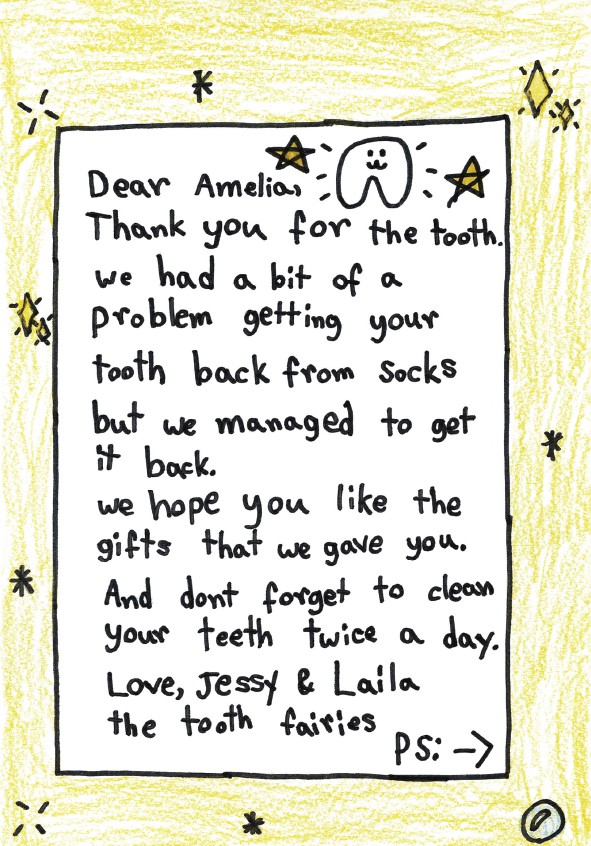 Dear Amelia,
Thank you for the tooth.
we had a bit of a
problem getting your
tooth back from socks
but we managed to get
it back.
we hope you like the
gifts that we gave you.
And dont forget to clean
your teeth twice a day.
Love, Jessy & Laila
the tooth fairies
PS: →